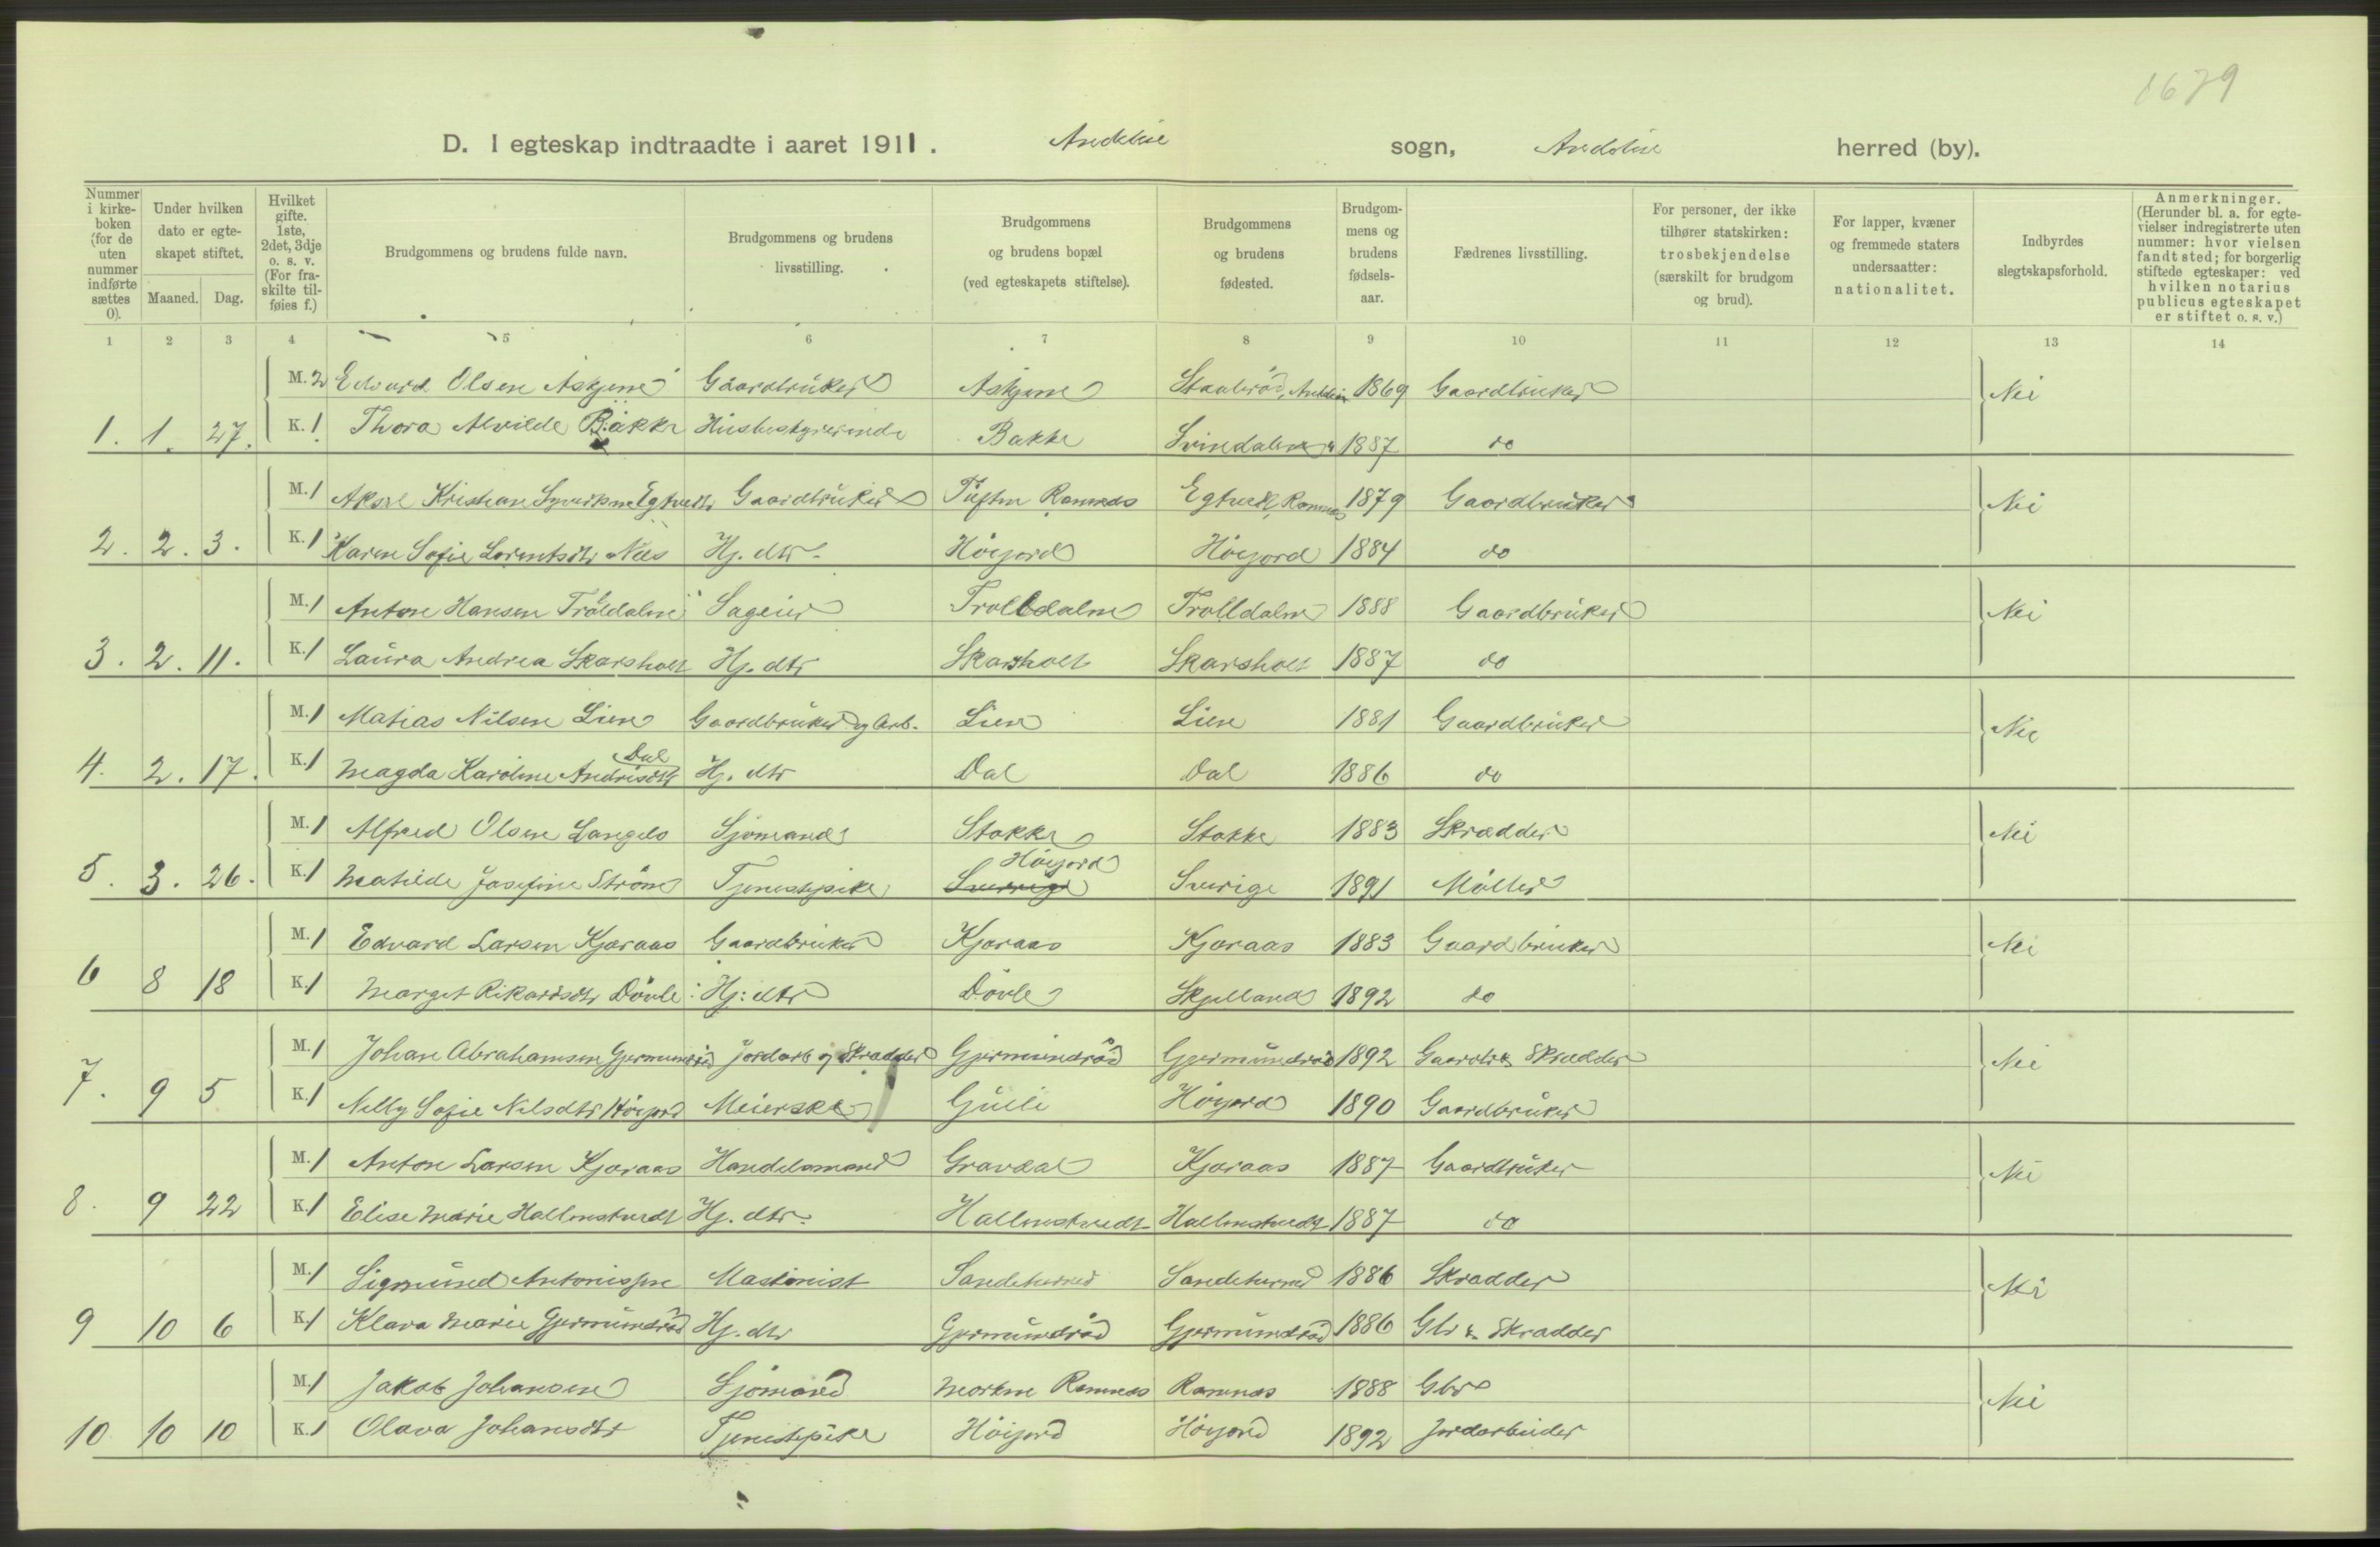 1679
D. I egteskap indtraadte i aaret 1911. Andebu sogn, Andebu herred (by).
Nummer i kirkeboken (for de uten nummer indførte sættes 0).
Under hvilken dato er egteskapet stiftet.
Maaned. Dag.
Hvilket gifte. 1ste, 2det, 3dje o. s. v. (For fraskilte tilføies f.)
Brudgommens og brudens fulde navn.
Brudgommens og brudens livsstilling.
Brudgommens og brudens bopæl (ved egteskapets stiftelse).
Brudgommens og brudens fødested.
Brudgommens og brudens fødselsaar.
Fædrenes livsstilling.
For personer, der ikke tilhører statskirken: trosbekjendelse (særskilt for brudgom og brud).
For lapper, kvæner og fremmede staters undersaatter: nationalitet.
Indbyrdes slegtskapsforhold.
Anmerkninger. (Herunder bl. a. for egtevielser indregistrerte uten nummer: hvor vielsen fandt sted; for borgerlig stiftede egteskaper: ved hvilken notarius publicus egteskapet er stiftet o. s. v.)
1 2 3 4 5 6 7 8 9 10 11 12 13 14
M. 2 Edvard Olsen Askjem Gaardbruker Askjem Andebu 1869 Gaardbruker Nei
1. 1. 27. K. 1 Thora Alvilde Bakke Husbestyrerinde Bakke Svindalen 1887 do
M. 1 Aksel Kristian Egtvedt Gaardbruker Tuften Ramnæs Egtvedt, Ramnæs 1879 Gaardbruker Nei
2. 2. 3. K. 1 Karen Sofie Lorentsdtr Næs Hj. dtr. Höijord Höijord 1884 do
M. 1 Anton Hansen Trolldalen Sageier Trolldalen Trolldalen 1888 Gaardbruker Nei
3. 2. 11. K. 1 Laura Andrea Skarsholt Hj. dtr Skarsholt Skarsholt 1887 do
M. 1 Matias Nilsen Lien Gaardbruker og Arb. Lien Lien 1881 Gaardbruker Nei
4. 2. 17. K. 1 Magda Karoline Andrisdtr Dal Hj. dtr Dal Dal 1886 do
M. 1 Alfred Olsen Langelo Sjömand Stokke Stokke 1883 Skrædder Nei
5. 3. 26. K. 1 Matilde Josefine Ström Tjenestepike Sverrige Höijord Sverige 1891 Möller
M. 1 Edvard Larsen Kjæraas Gaardbruker Kjæraas Kjæraas 1883 Gaardbruker Nei
6 8 18 K. 1 Marget Rikardsdtr Dövle Hj: dtr Dövle Skjelland 1892 do
M. 1 Johan Abrahamsen Gjermundröd Jordarb og Skrædder Gjermundröd Gjermundröd 1892 Gaardbr & Skrædder Nei
7. 9 5 K. 1 Nelly Sofie Nilsdtr Höijord Meierske Gulli Höijord 1890 Gaardbruker
M. 1 Anton Larsen Kjæraas Handelsmand Gravdal Kjæraas 1887 Gaardbruker Nei
8. 9 22 K. 1 Elise Marie Hallenstvedt Hj. dtr. Hallenstvedt Hallenstvedt 1887 do
M. 1 Sigmund Antonissen Maskinist Sandeherred Sandeherred 1886 Skrædder Nei
9 10 6 K. 1 Klara Marie Gjermundröd Hj. dtr Gjermundröd Gjermundröd 1886 Gbr & Skrædder
M. 1 Jakob Johansen Sjömand Ramnæs Ramnæs 1888 Gbr Nei
10 10 10 K. 1 Olava Johansdtr Tjenestepike Höijord Höijord 1892 Jordarbeider